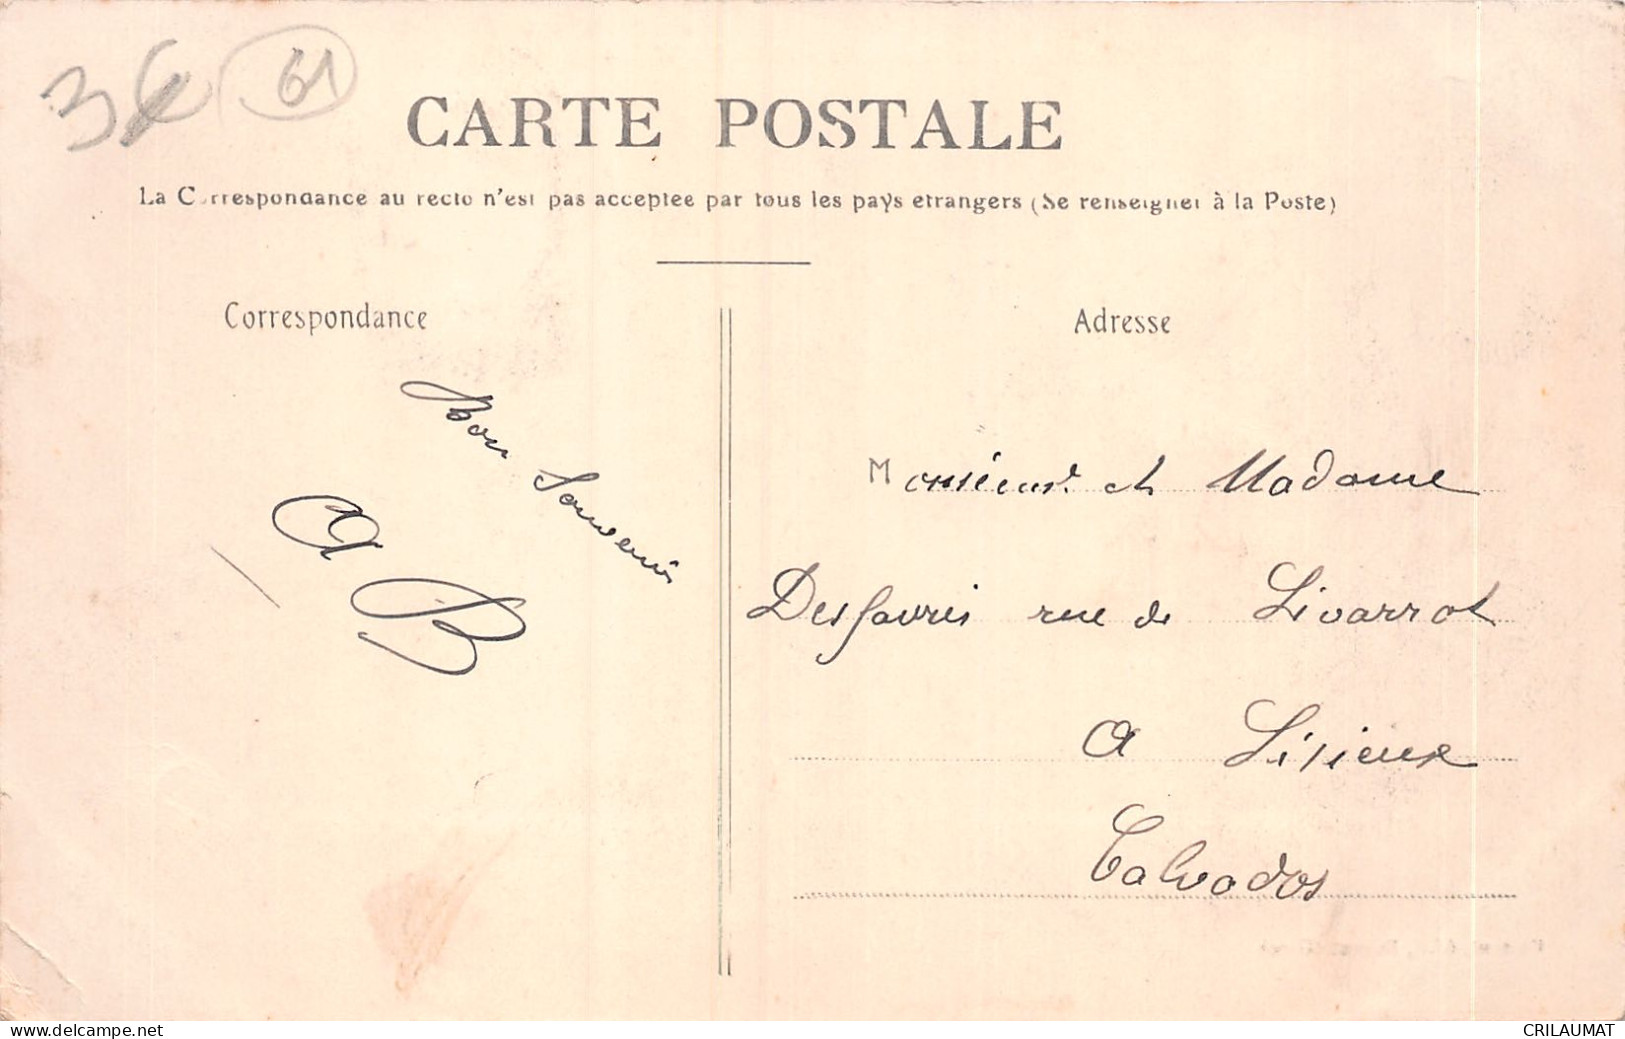 3€ 61
CARTE POSTALE
La Correspondance au recto n'est pas acceptée par tous les pays étrangers (Se renseigner à la Poste)
Correspondance
Adresse
Bon Souvenir
A B
Monsieur et Madame
Desfavris rue de Livarrot
A Lisieux
Calvados
www.delcampe.net
CRILAUMAT